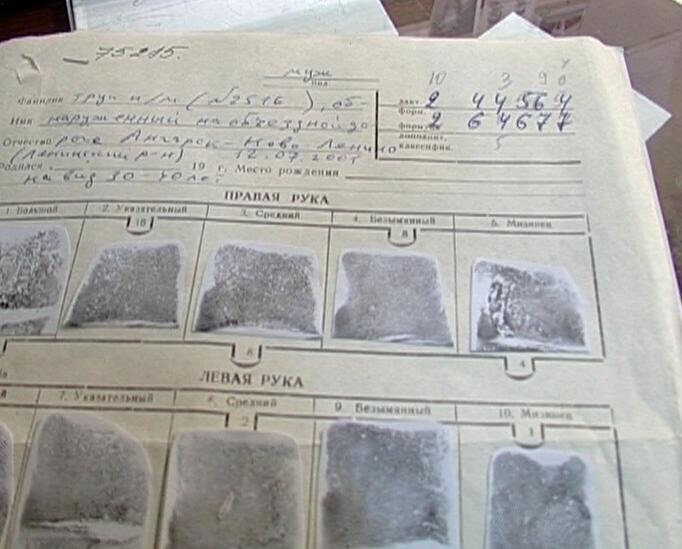 75215.
муж
пол
10 3 9 0
Фамилия труп н/м (№2516), об-
дакт. 2 4 4 56 4
форм.
Имя наруженный на объездной до-
форм. 2 6 4 6 7 7
дополнит.
классифик. 5
Отчество роге Ангарск - Ново-Ленино
(Ленинский р-н) 12.07.2001
Родился 19 г. Место рождения
на вид 30-40 лет
ПРАВАЯ РУКА
1. Большой 2. Указательный 3. Средний 4. Безымянный 5. Мизинец
16 8
8 4
ЛЕВАЯ РУКА
7. Указательный 8. Средний 9. Безымянный 10. Мизинец
2 1